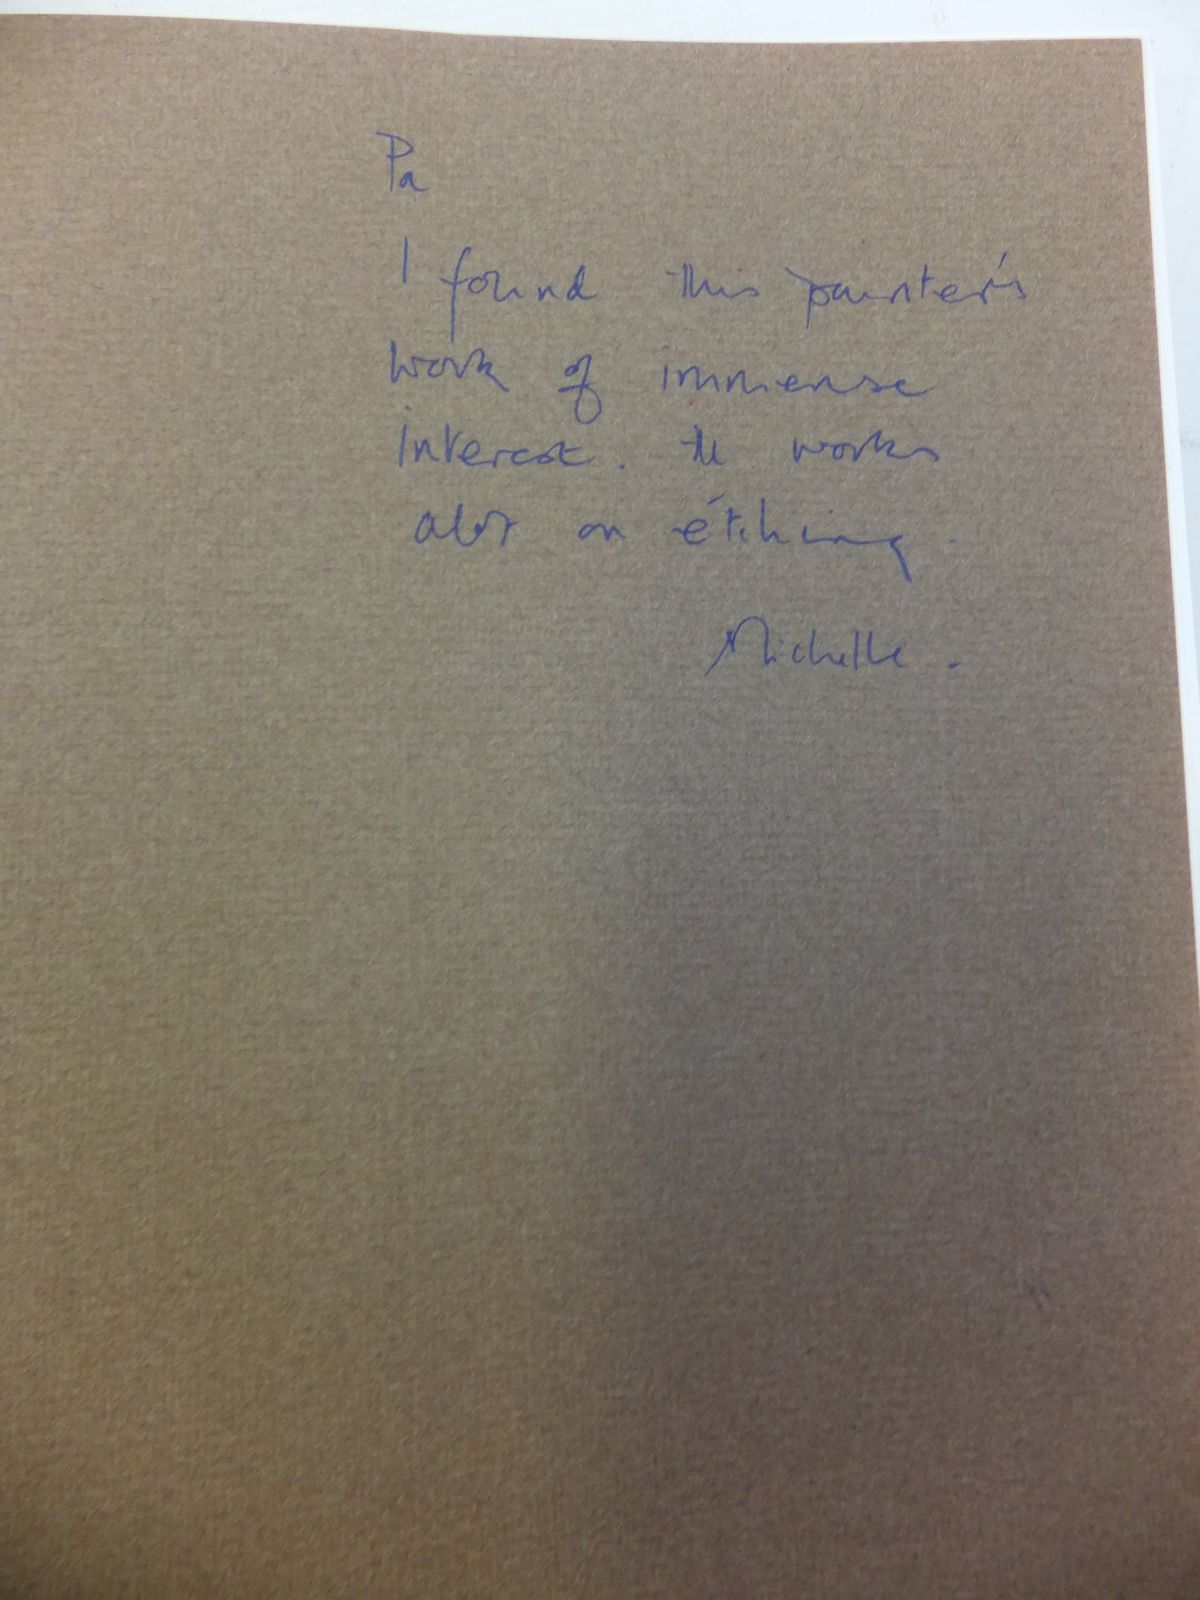 Pa
I found this painter's
work of immense
interest. He works
alot on etching.
Michelle.